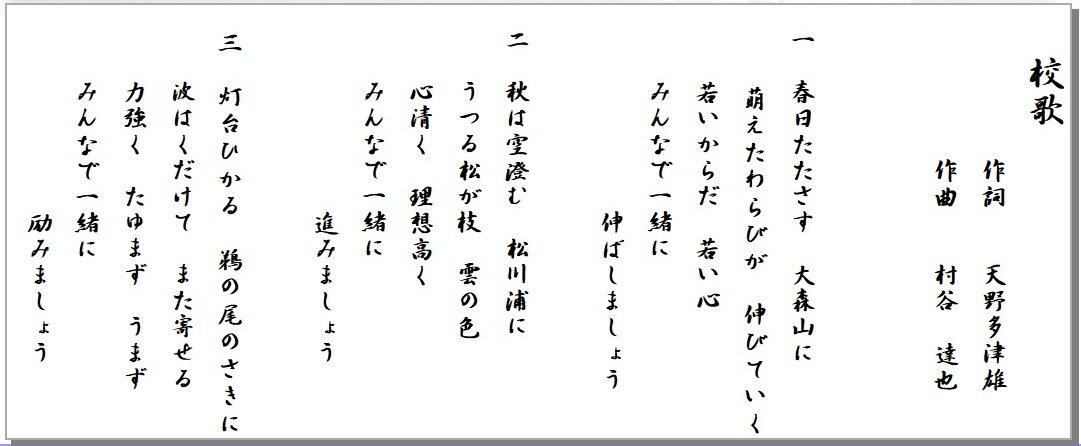 校歌
作詞　天野多津雄
作曲　村谷　達也
一　春日たたさす　大森山に
萌えたわらびが　伸びていく
若いからだ　若い心
みんなで一緒に
伸ばしましょう
二　秋は空澄む　松川浦に
うつる松が枝　雲の色
心清く　理想高く
みんなで一緒に
進みましょう
三　灯台ひかる　鵜の尾のさきに
波はくだけて　また寄せる
力強く　たゆまず　うまず
みんなで一緒に
励みましょう